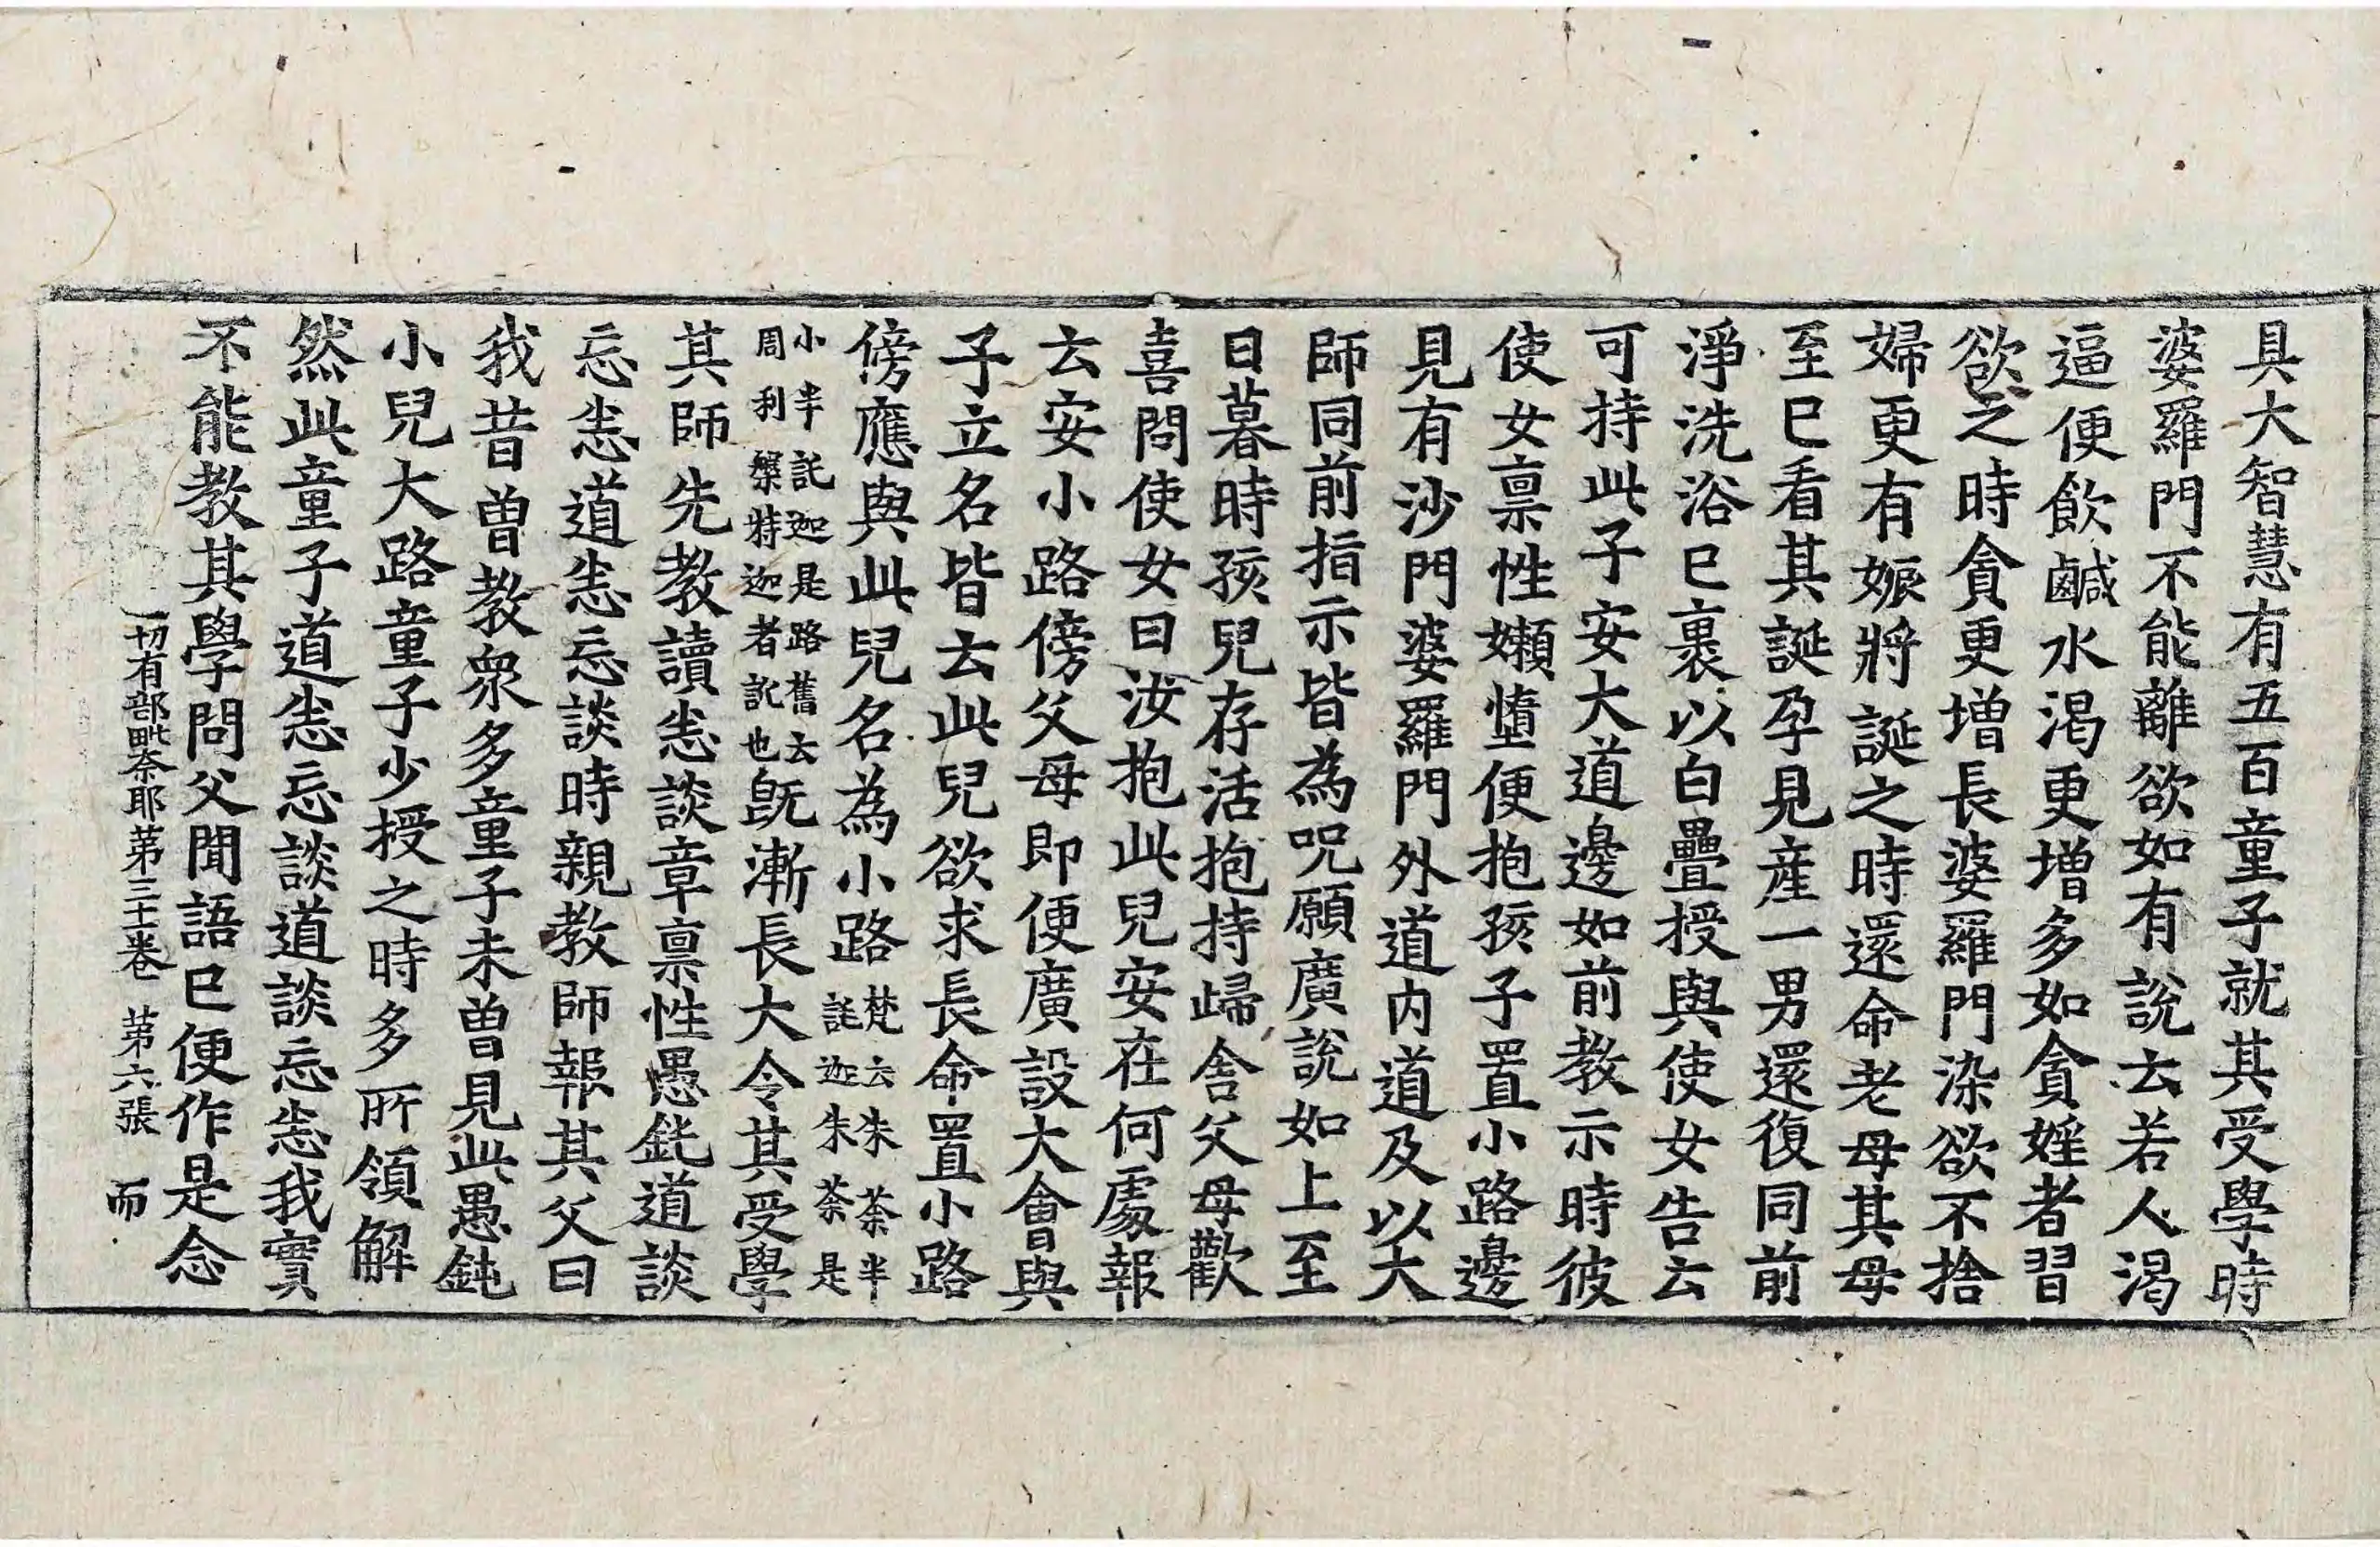 具大智慧有五百童子就其受學時
婆羅門不能離欲如有說去若人渴
逼便飲鹹水渴更增多如貪婬者習
欲之時貪更增長婆羅門染欲不捨
婦更有娠將誕之時還命老母其母
至已看其誕孕見産一男還復同前
淨洗浴已裹以白疊授與使女告云
可持此子安大道邊如前教示時彼
使女禀性嬾墮便抱孩子置小路邊
見有沙門婆羅門外道内道及以大
師同前指示皆為呪願廣說如上至
日暮時孩兒存活抱持歸舍父母歡
喜問使女曰汝抱此兒安在何處報
云安小路傍父母即便廣設大會與
子立名皆云此兒欲求長命置小路
傍應與此兒名為小路梵云朱荼半託迦朱荼是
小半託迦是路舊云周利槃特迦者訛也既漸長大令其受學
其師先教讀恙談章禀性愚鈍道談
忘恙道恙忘談時親教師報其父曰
我昔曾教衆多童子未曾見此愚鈍
小兒大路童子少授之時多所領解
然此童子道恙忘談道談忘恙我實
不能教其學問父聞語已便作是念
一切有部毗奈耶第三十一卷 第六張 而